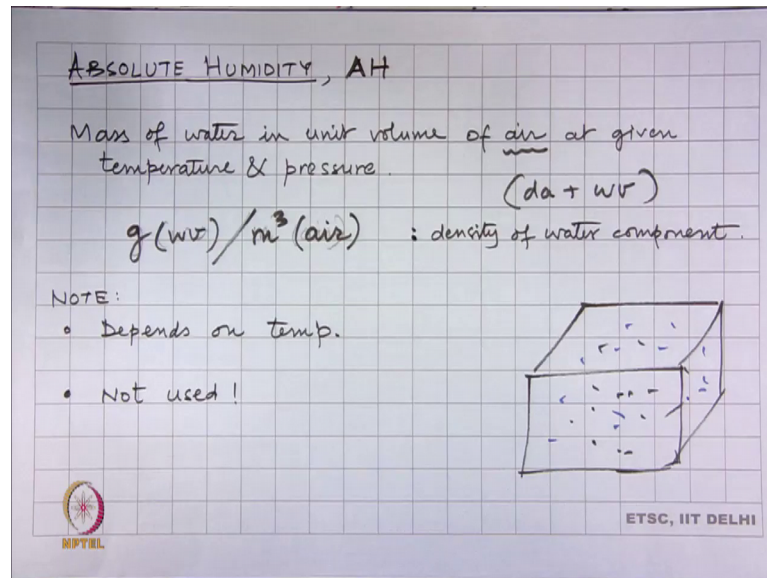 ABSOLUTE HUMIDITY, AH
Mass of water in unit volume of air at given
temperature & pressure.
(da + wv)
g(wv)/m³(air) : density of water component.
NOTE:
• Depends on temp.
• Not used!
NPTEL
ETSC, IIT DELHI